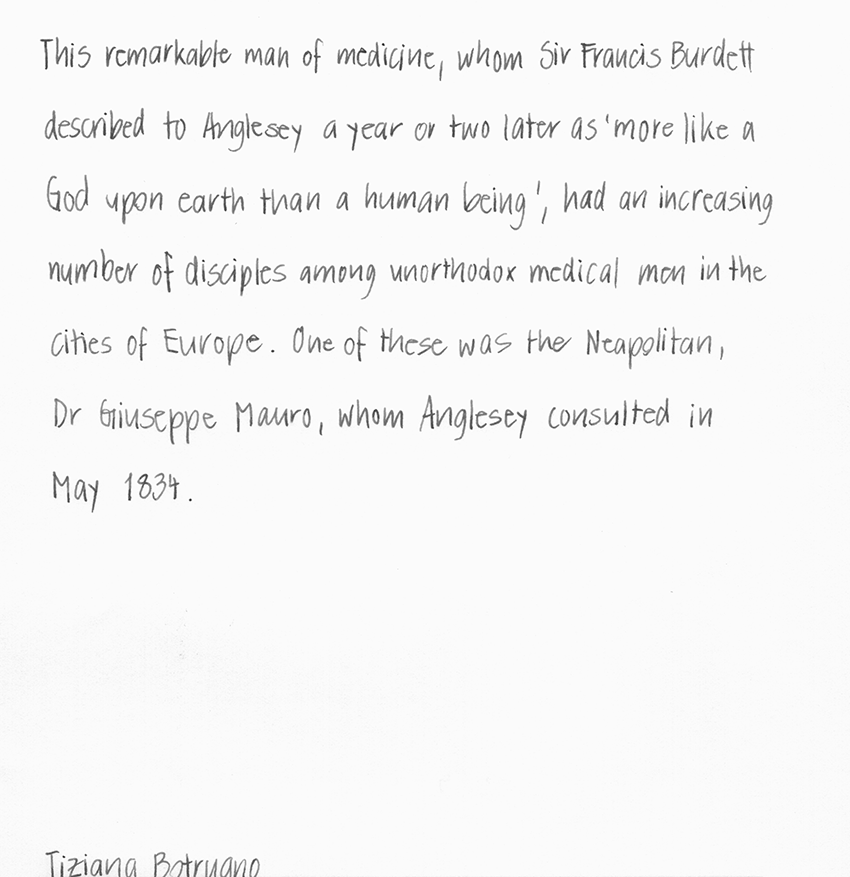 This remarkable man of medicine, whom Sir Francis Burdett
described to Anglesey a year or two later as 'more like a
God upon earth than a human being', had an increasing
number of disciples among unorthodox medical men in the
cities of Europe. One of these was the Neapolitan,
Dr Giuseppe Mauro, whom Anglesey consulted in
May 1834.
Tiziana